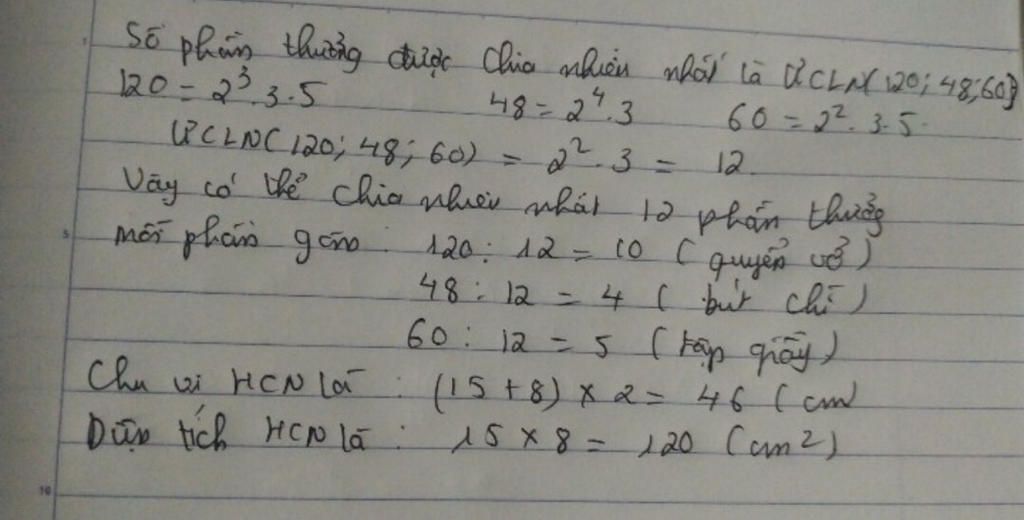 Số phần thưởng được chia nhiều nhất là ƯCLN(120; 48; 60)
120 = 2³.3.5 48 = 2⁴.3 60 = 2².3.5.
ƯCLN(120; 48; 60) = 2².3 = 12
Vậy có thể chia nhiều nhất 12 phần thưởng
5 mỗi phần gồm : 120 : 12 = 10 (quyển vở)
48 : 12 = 4 (bút chì)
60 : 12 = 5 (tập giấy)
Chu vi HCN là : (15 + 8) × 2 = 46 (cm)
Diện tích HCN là : 15 × 8 = 120 (cm²)
10